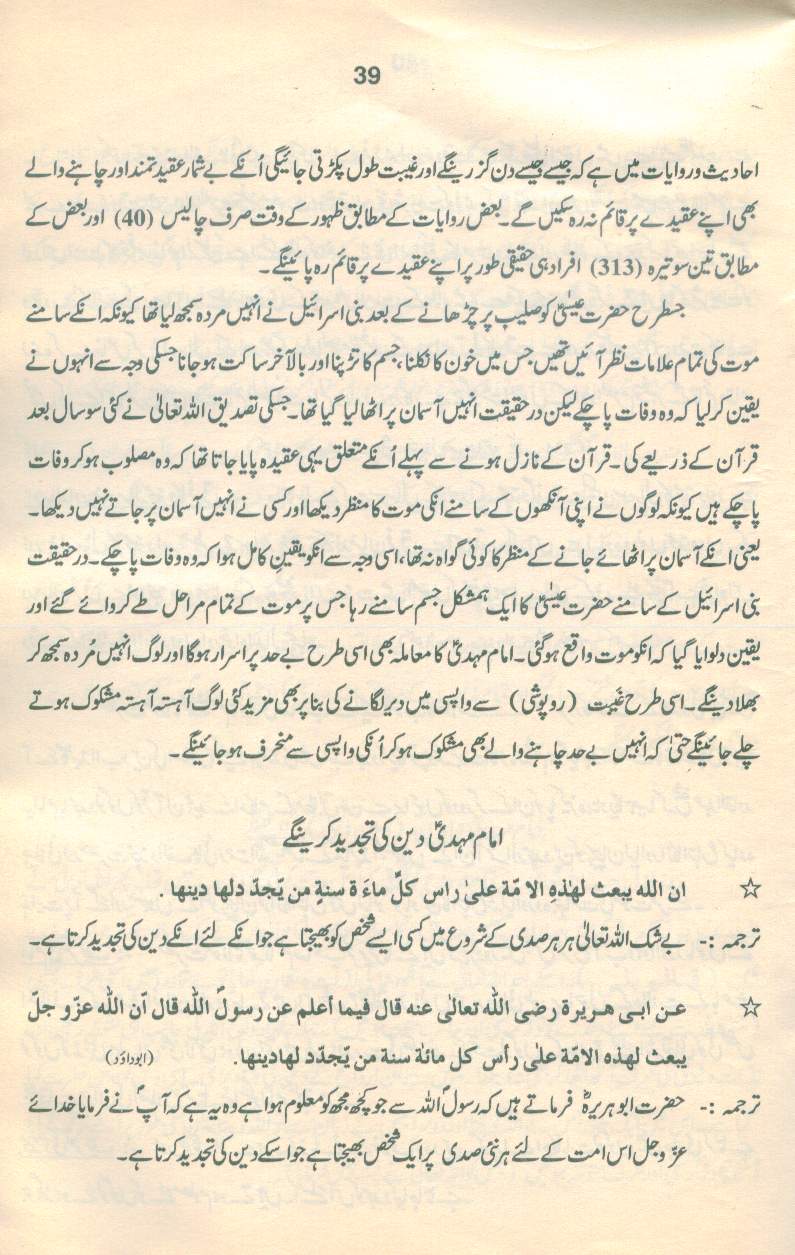 39
احادیث و روایات میں ہے کہ جیسے جیسے دن گزرینگے اور غیبت طول پکڑتی جائیگی اُنکے بے شمار عقیدتمند اور چاہنے والے
بھی اپنے عقیدے پر قائم نہ رہ سکیں گے۔ بعض روایات کے مطابق ظہور کے وقت صرف چالیس (40) اور بعض کے
مطابق تین سو تیرہ (313) افراد ہی حقیقی طور پر اپنے عقیدے پر قائم رہ پائینگے۔
جسطرح حضرت عیسیٰؑ کو صلیب پر چڑھانے کے بعد بنی اسرائیل نے انہیں مردہ سمجھ لیا تھا کیونکہ انکے سامنے
موت کی تمام علامات نظر آئیں تھیں جس میں خون کا نکلنا، جسم کا تڑپنا اور بالآخر ساکت ہو جانا جسکی وجہ سے انہوں نے
یقین کر لیا کہ وہ وفات پا چکے لیکن در حقیقت انہیں آسمان پر اٹھا لیا گیا تھا۔ جسکی تصدیق اللہ تعالیٰ نے کئی سو سال بعد
قرآن کے ذریعے کی۔ قرآن کے نازل ہونے سے پہلے اُنکے متعلق یہی عقیدہ پایا جاتا تھا کہ وہ مصلوب ہو کر وفات
پا چکے ہیں کیونکہ لوگوں نے اپنی آنکھوں کے سامنے انکی موت کا منظر دیکھا اور کسی نے انہیں آسمان پر جاتے نہیں دیکھا۔
یعنی انکے آسمان پر اٹھائے جانے کے منظر کا کوئی گواہ نہ تھا، اسی وجہ سے انکو یقینِ کامل ہوا کہ وہ وفات پا چکے۔ در حقیقت
بنی اسرائیل کے سامنے حضرت عیسیٰؑ کا ایک ہمشکل جسم سامنے رہا جس پر موت کے تمام مراحل طے کروائے گئے اور
یقین دلوایا گیا کہ انکو موت واقع ہو گئی۔ امام مہدیؑ کا معاملہ بھی اسی طرح بے حد پر اسرار ہوگا اور لوگ انہیں مُردہ سمجھ کر
بھلا دینگے۔ اسی طرح غَیبت (روپوشی) سے واپسی میں دیر لگانے کی بنا پر بھی مزید کئی لوگ آہستہ آہستہ مشکوک ہوتے
چلے جائینگے حتیٰ کہ انہیں بے حد چاہنے والے بھی مشکوک ہو کر اُنکی واپسی سے منحرف ہو جائینگے۔
امام مہدیؑ دین کی تجدید کرینگے
☆ ان الله یبعث لهٰذہِ الا مّة علیٰ راس کلِّ ماءَ ة سنةٍ من یّجدّ دلها دینها .
ترجمہ :- بے شک اللہ تعالیٰ ہر ہر صدی کے شروع میں کسی ایسے شخص کو بھیجتا ہے جو انکے لئے انکے دین کی تجدید کرتا ہے۔
☆ عن ابی هریرة رضی الله تعالیٰ عنه قال فیما أعلم عن رسولؐ الله قال اَن الله عزّو جلّ
یبعث لهذه الامّة علیٰ رأس کل مائة سنة من یّجدّد لهادینها. (ابوداؤد)
ترجمہ :- حضرت ابو ہریرہؓ فرماتے ہیں کہ رسولؐ اللہ سے جو کچھ مجھ کو معلوم ہوا ہے وہ یہ ہے کہ آپؐ نے فرمایا خدائے
عزّ و جل اس امت کے لئے ہر نئی صدی پر ایک شخص بھیجتا ہے جو اسکے دین کی تجدید کرتا ہے۔